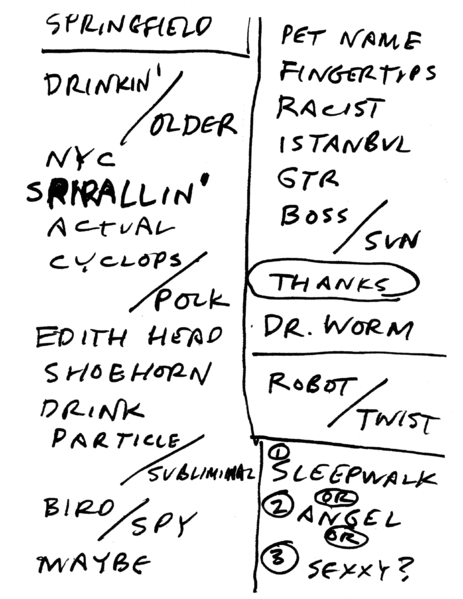 SPRINGFIELD
DRINKIN'/
OLDER
NYC
SPIRALLIN'
ACTUAL
CYCLOPS/
POLK
EDITH HEAD
SHOEHORN
DRINK
PARTICLE/
SUBLIMINAL
BIRD/
SPY
MAYBE
PET NAME
FINGERTIPS
RACIST
ISTANBUL
GTR
BOSS/
SUN
THANKS
DR. WORM
ROBOT/
TWIST
① SLEEPWALK
OR
② ANGEL
OR
③ SEXXY?